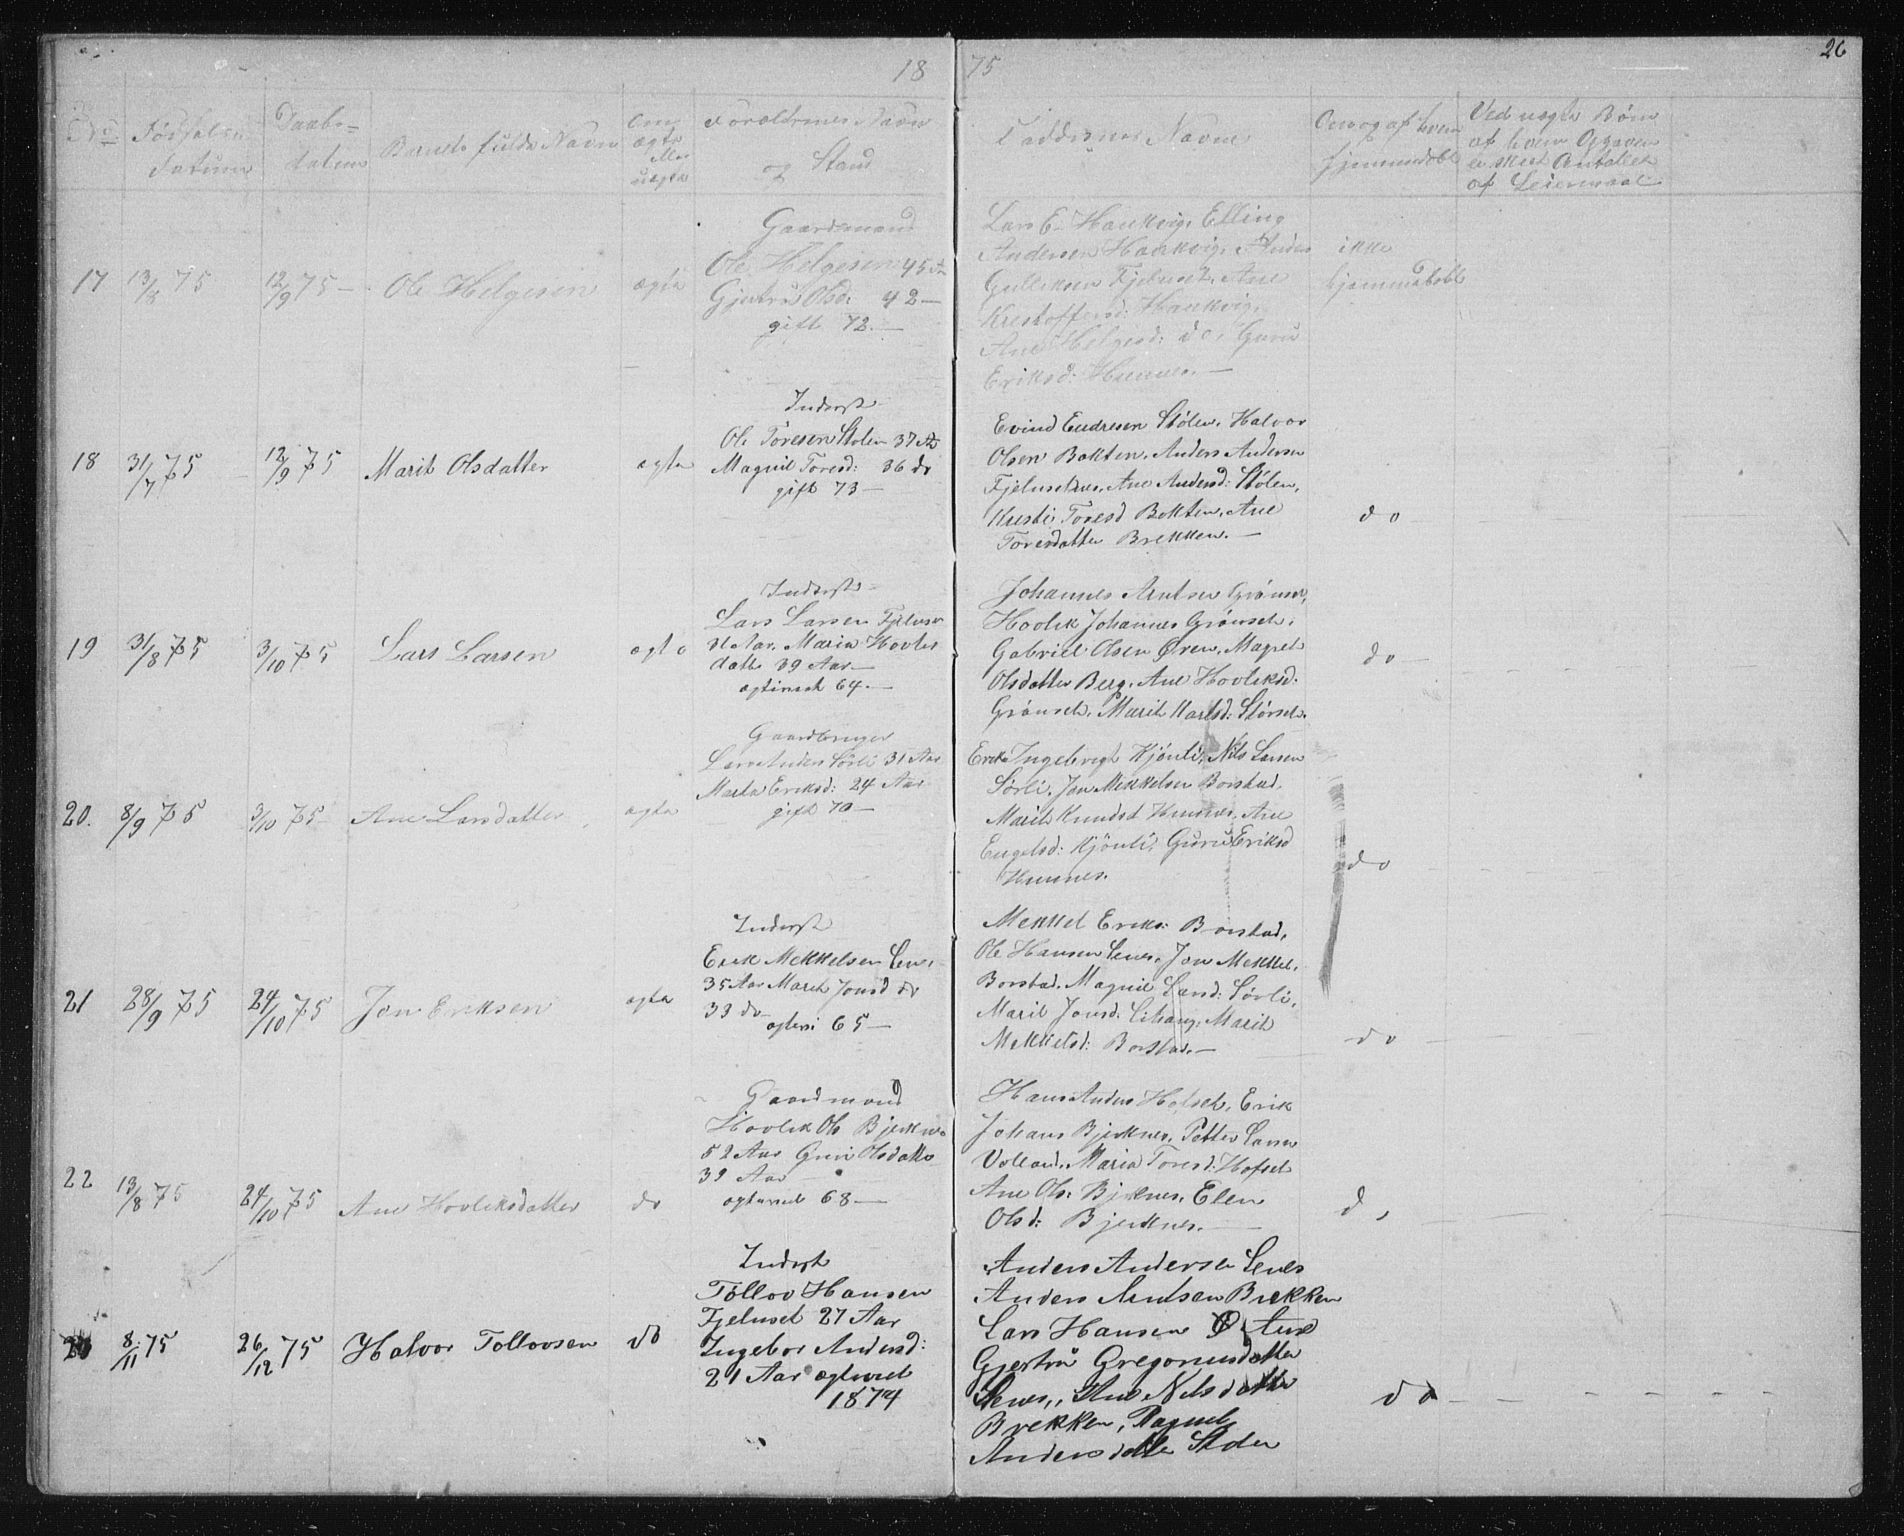 18 75
26
No
Fødselsdatum
Daabsdatum
Barnets fulde Navn
Om ægte eller uægte
Forældrenes Navn og Stand
Faddernes Navne
Om og af hvem hjemmedøbt
Ved uægte Børn af hvem Opgaven er skeet Antallet af Leiermaal
17 13/8 75 12/9 75 - Ole Helgesen ægte
Gaardemand
Ole Helgesen 45 Aar
Gjertru Olsd: 42 -
gift 72. -
Lars E. Haukvig, Elling
Andersen Haukvig, Anders
Gulliksen Fjeluset, Ane
Kristoffersd: Haukvig,
Ane Helgesd: do, Guru
Eriksd: Humnes. -
ikke
hjemmedøbt
18 31/7 75 12/9 75 Marit Olsdatter ægte
Inderst
Ole Toresen Stolen 37 Aar
Magnil Toresd: 36 do
gift 73 -
Evind Endresen Stølen, Halvor
Olsen Bokten, Anders Andersen
Fjelusetnes, Ane Andersd: Stølen,
Kristi Toresd Bokten, Ane
Toresdatter Brekken. -
do
19 31/8 75 3/10 75 Lars Larsen ægte
Inderst
Lars Larsen Fjeluset
Aar, Maria Hovles
datt 39 Aar -
ægteviet 64. -
Johannes Arntsen Grønset,
Hovlek Johannes Grønset,
Gabriel Olsen Øren, Magret
Olsdatter Berg, Ane Hovleksd:
Grønset, Marit Karlsd: Størset.
do -
20. 8/9 75 3/10 75 Ane Larsdatter ægte
Gaardbruger
Lars Anders Sørli 31 Aar
Marta Eriksd: 24 Aar
gift 70 -
Erik Ingebrigt Kjønli, Nils Larsen
Sørli, Jon Mekkelsen Borstad,
Marit Knudsd Humnes, Ane
Engelsd: Kjønli, Guru Eriksd
Humnes.
do
21 28/9 75 24/10 75 Jon Eriksen ægte
Inderst
Erik Mekkelsen Lenes
35 Aar Marit Jonsd do
33 do
ægtevi 65 -
Mekkel Eriks: Borstad,
Ole Hansen Lenes, Jon Mekkel,
Borstad, Magnil Larsd: Sørli,
Marit Jonsd: Lihaug, Marit
Mekkelsd: Borstad. -
do
22 13/8 75 24/10 75 Ane Hovleksdatter do
Gaardmand
Hovlek Ols Bjerknes
52 Aar Guri Olsdatter
39 Aar
ægteviet 68 -
Hans Anders Hofset, Erik
Johans Bjerknes, Petter Larsen
Volland, Maria Toresd: Hofset
Ane Ols: Bjerknes, Elen
Olsd: Bjerknes. -
do
8/11 75 26/12 75 Halvor Tollovsen do
Inderst
Tollov Hansen
Fjeluset 27 Aar
Ingebor Andersd:
21 Aar ægteviet
1874
Anders Andersen Lenes
Anders Arntsen Brekken
Lars Hansen Ane
Gjertru Gregoriusdatter
Lenes, Ane Nilsdatter
Brekken, Ragnel
Andersdatter Stolen
do